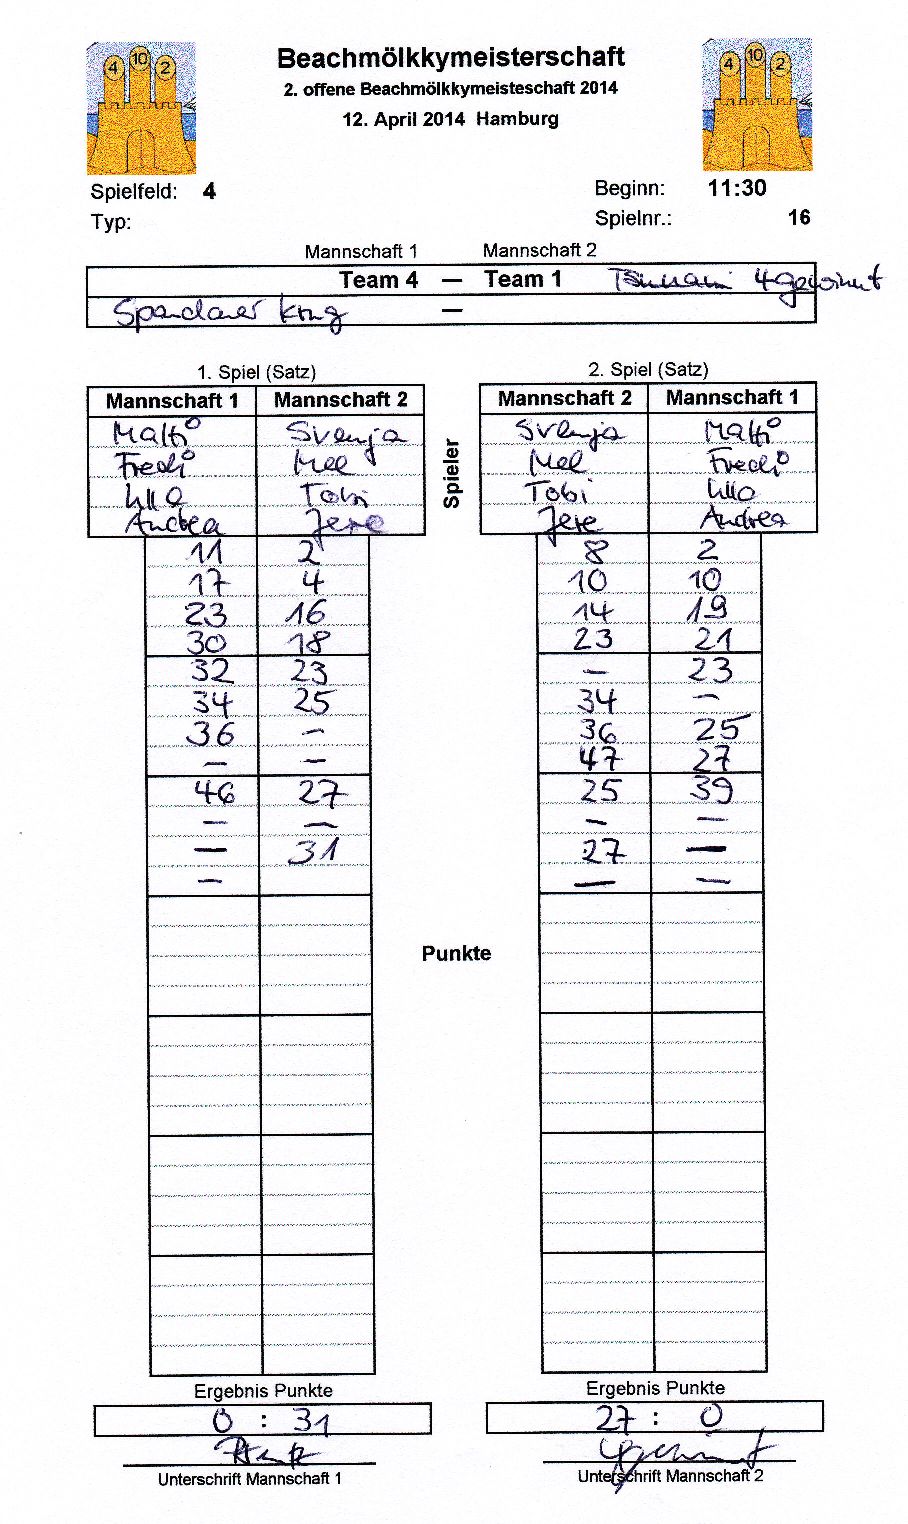 4 10 2 Beachmölkkymeisterschaft 4 10 2
2. offene Beachmölkkymeisteschaft 2014
12. April 2014 Hamburg
Spielfeld: 4 Beginn: 11:30
Typ: Spielnr.: 16
Mannschaft 1 Mannschaft 2
Team 4 — Team 1 Tsunami 4gewinnt
Spandauer —
1. Spiel (Satz) 2. Spiel (Satz)
Mannschaft 1 Mannschaft 2 Mannschaft 2 Mannschaft 1
Svenja Svenja
Fredi Mel Mel Fredi
Ulla Tobi Tobi Ulla
Andrea Jere Jere Andrea
Spieler
11 2 8 2
17 4 10 10
23 16 14 19
30 18 23 21
32 23 – 23
34 25 34 –
36 – 36 25
– – 47 27
46 27 25 39
– – – –
– 31 27 –
– – –
Punkte
Ergebnis Punkte Ergebnis Punkte
0 : 31 27 : 0
4gewinnt
Unterschrift Mannschaft 1 Unterschrift Mannschaft 2